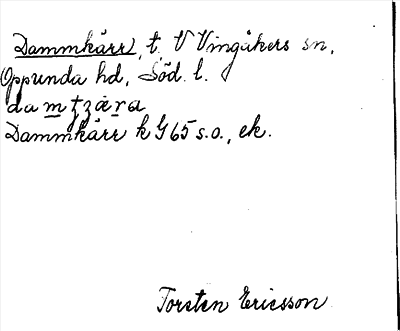 Dammkärr, t. V Vingåkers sn,
Oppunda hd, Söd. l.
damtzæra
Dammkärr k G 65 s.o., ek.
Torsten Ericsson